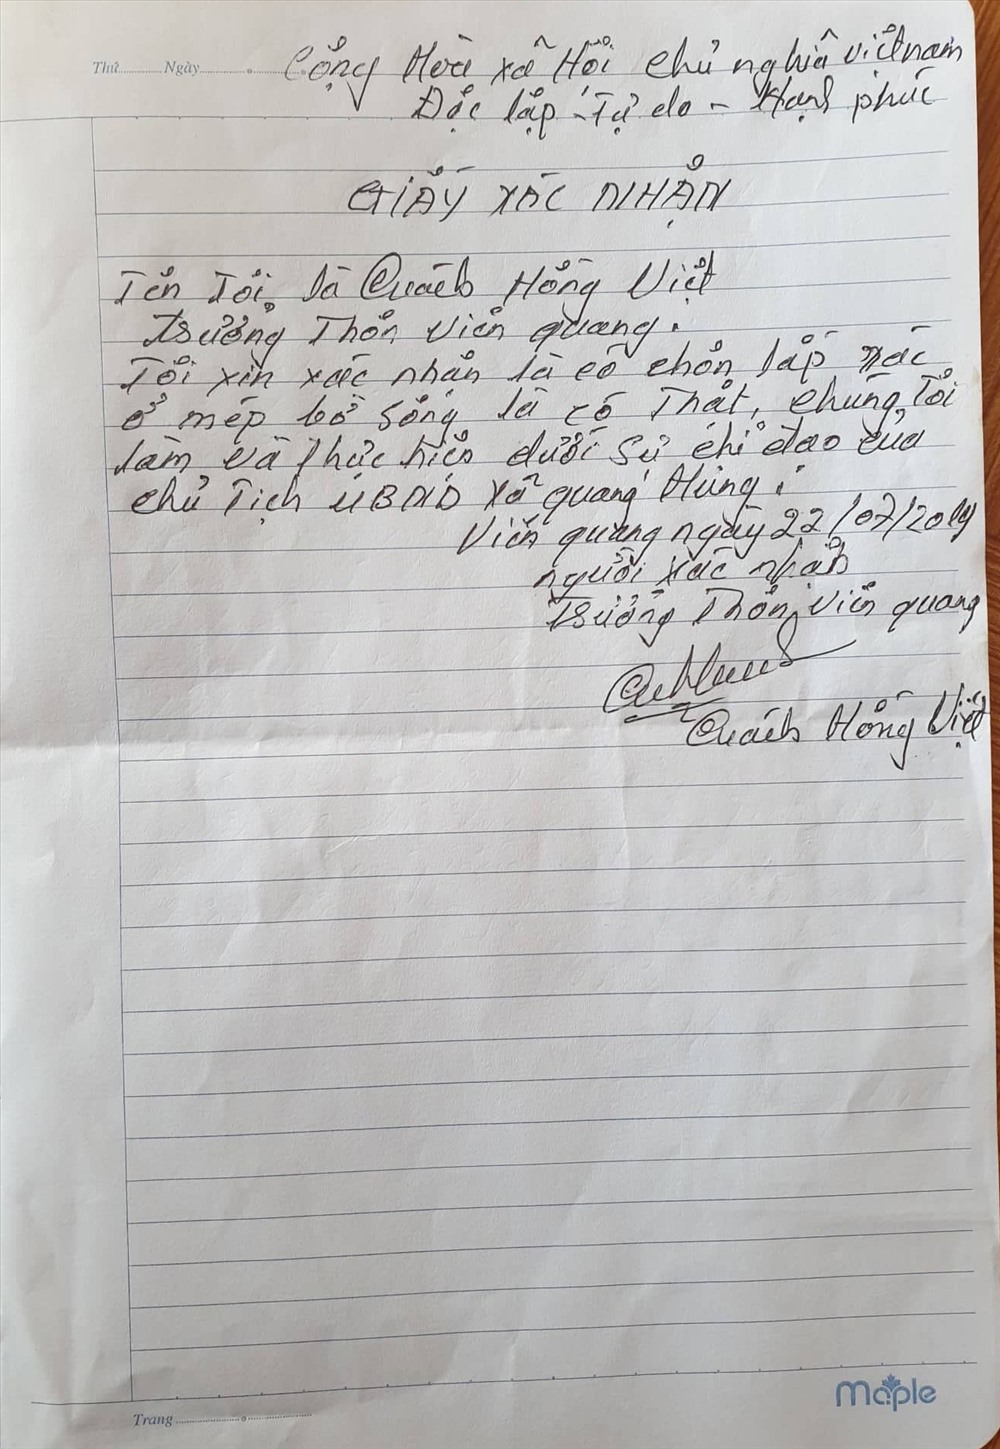 Thứ........ Ngày............
Cộng Hòa xã Hội chủ nghĩa việt nam
Độc lập - Tự do - Hạnh phúc
GIẤY XÁC NHẬN
Tên Tôi, là Quách Hồng Việt
Trưởng Thôn viên quang.
Tôi xin xác nhận là có chôn lấp rác
ở mép bờ sông là có Thật, chúng Tôi
làm và thực hiện dưới sự chỉ đạo của
chủ Tịch UBND xã quang Hùng.
Viên quang ngày 22/07/2019
người xác nhận
Trưởng Thôn viên quang
Quách Hồng Việt
Maple
Trang............